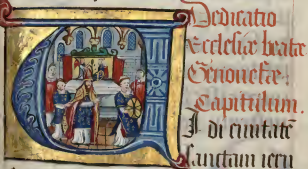 Dedicatio
Ecclesiæ beatæ
Genouefæ
Capitulum.
Vidi ciuitatē
sanctam ieru